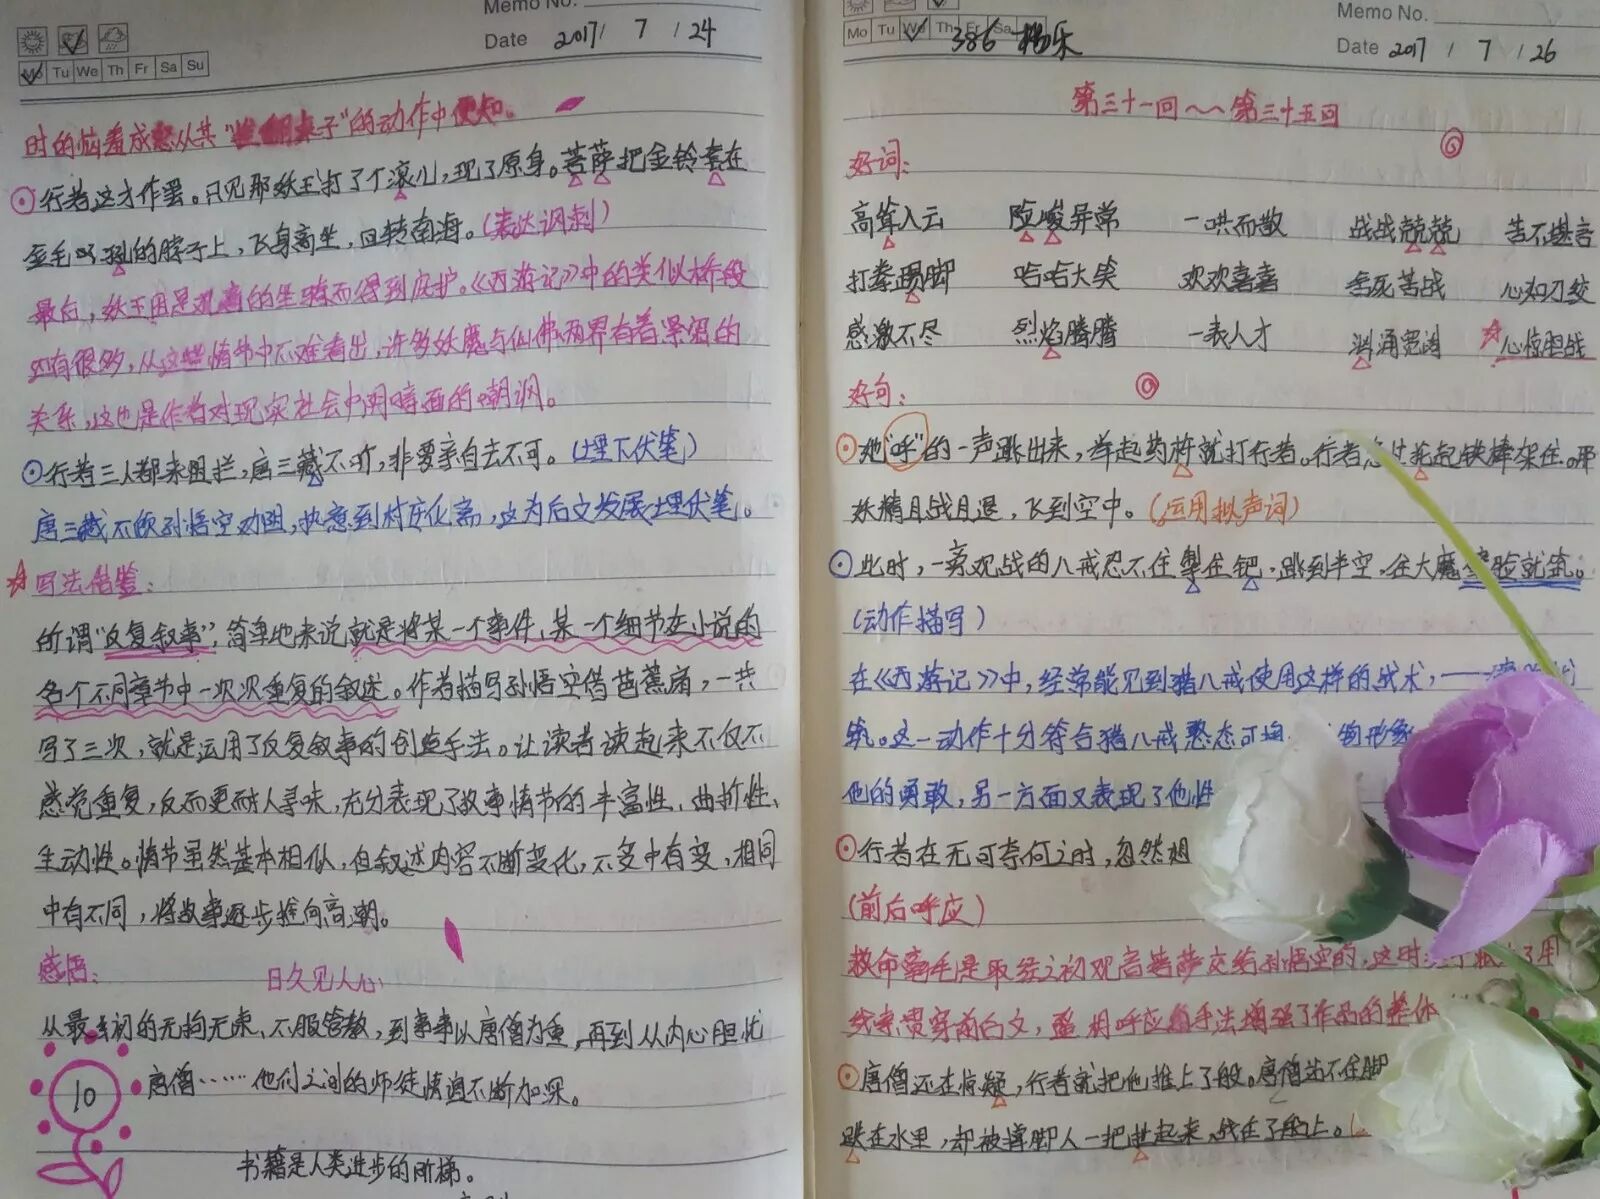 Memo No.
Date 2017 / 7 / 24
Mo Tu We Th Fr Sa Su
时的恼羞成怒从其“ 桌子”的动作中便知。
行者这才作罢。只见那妖王打了个滚儿,现了原身。菩萨把金铃套在
金毛犼的脖子上,飞身高坐,回转南海。(表达讽刺)
最后,妖王因是观音的坐骑而得到庇护。《西游记》中的类似桥段
还有很多,从这些情节中不难看出,许多妖魔与仙佛两界有着紧密的
关系,这也是作者对现实社会中阴暗面的嘲讽。
行者三人都来阻拦,唐三藏不听,非要亲自去不可。(埋下伏笔)
唐三藏不顾孙悟空劝阻,执意到村庄化斋,这为后文发展埋伏笔。
写法借鉴:
所谓“反复叙事”,简单地来说就是将某一个事件、某一个细节在小说的
各个不同章节中一次次重复的叙述。作者描写孙悟空借芭蕉扇,一共
写了三次,就是运用了反复叙事的创造手法。让读者读起来不仅不
感觉重复,反而更耐人寻味,充分表现了故事情节的丰富性、曲折性、
生动性。情节虽然基本相似,但叙述内容不断变化,不变中有变,相同
中有不同,将故事逐步推向高潮。
感悟:
日久见人心
从最初的无拘无束、不服管教,到事事以唐僧为重,再到从内心担忧
唐僧……他们之间的师徒情谊不断加深。
10
书籍是人类进步的阶梯。
Memo No.
Mo Tu We Th Fr Sa
386 杨乐
Date 2017 / 7 / 26
第三十一回~~第三十五回
好词:
高耸入云 险峻异常 一哄而散 战战兢兢 苦不堪言
打拳踢脚 哈哈大笑 欢欢喜喜 舍死苦战 心如刀绞
感激不尽 烈焰腾腾 一表人才 汹涌 心惊胆战
好句:
她“呼”的一声跳出来,举起药杵就打行者。行者 起铁棒架住。那
妖精且战且退,飞到空中。(运用拟声词)
此时,一旁观战的八戒忍不住掣住钯,跳到半空,往大魔 脸就筑。
(动作描写)
在《西游记》中,经常能见到猪八戒使用这样的战术,——
筑。这一动作十分符合猪八戒憨态可掬
他的勇敢,另一方面又表现了他性
行者在无可奈何之时,忽然想
(前后呼应)
救命毫毛是取经之初观音菩萨交给孙悟空的,这时
线索贯穿前后文, 相呼应的手法增强了作品的整体
唐僧还在惊疑,行者就把他推上了船。唐僧站不住脚
跌在水里,却被撑脚人一把 起来,站在了船上。